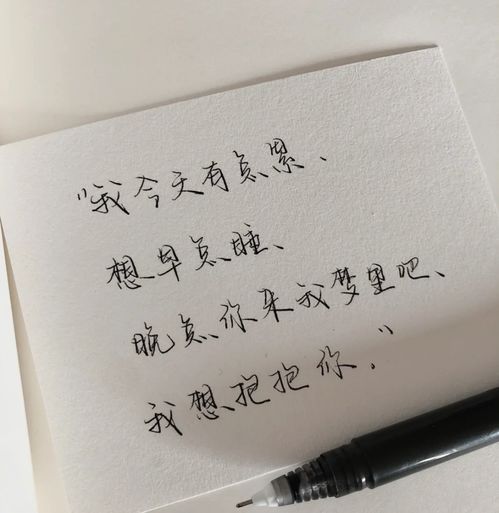 “我今天有点累、
想早点睡、
晚点你来我梦里吧、
我想抱抱你.”